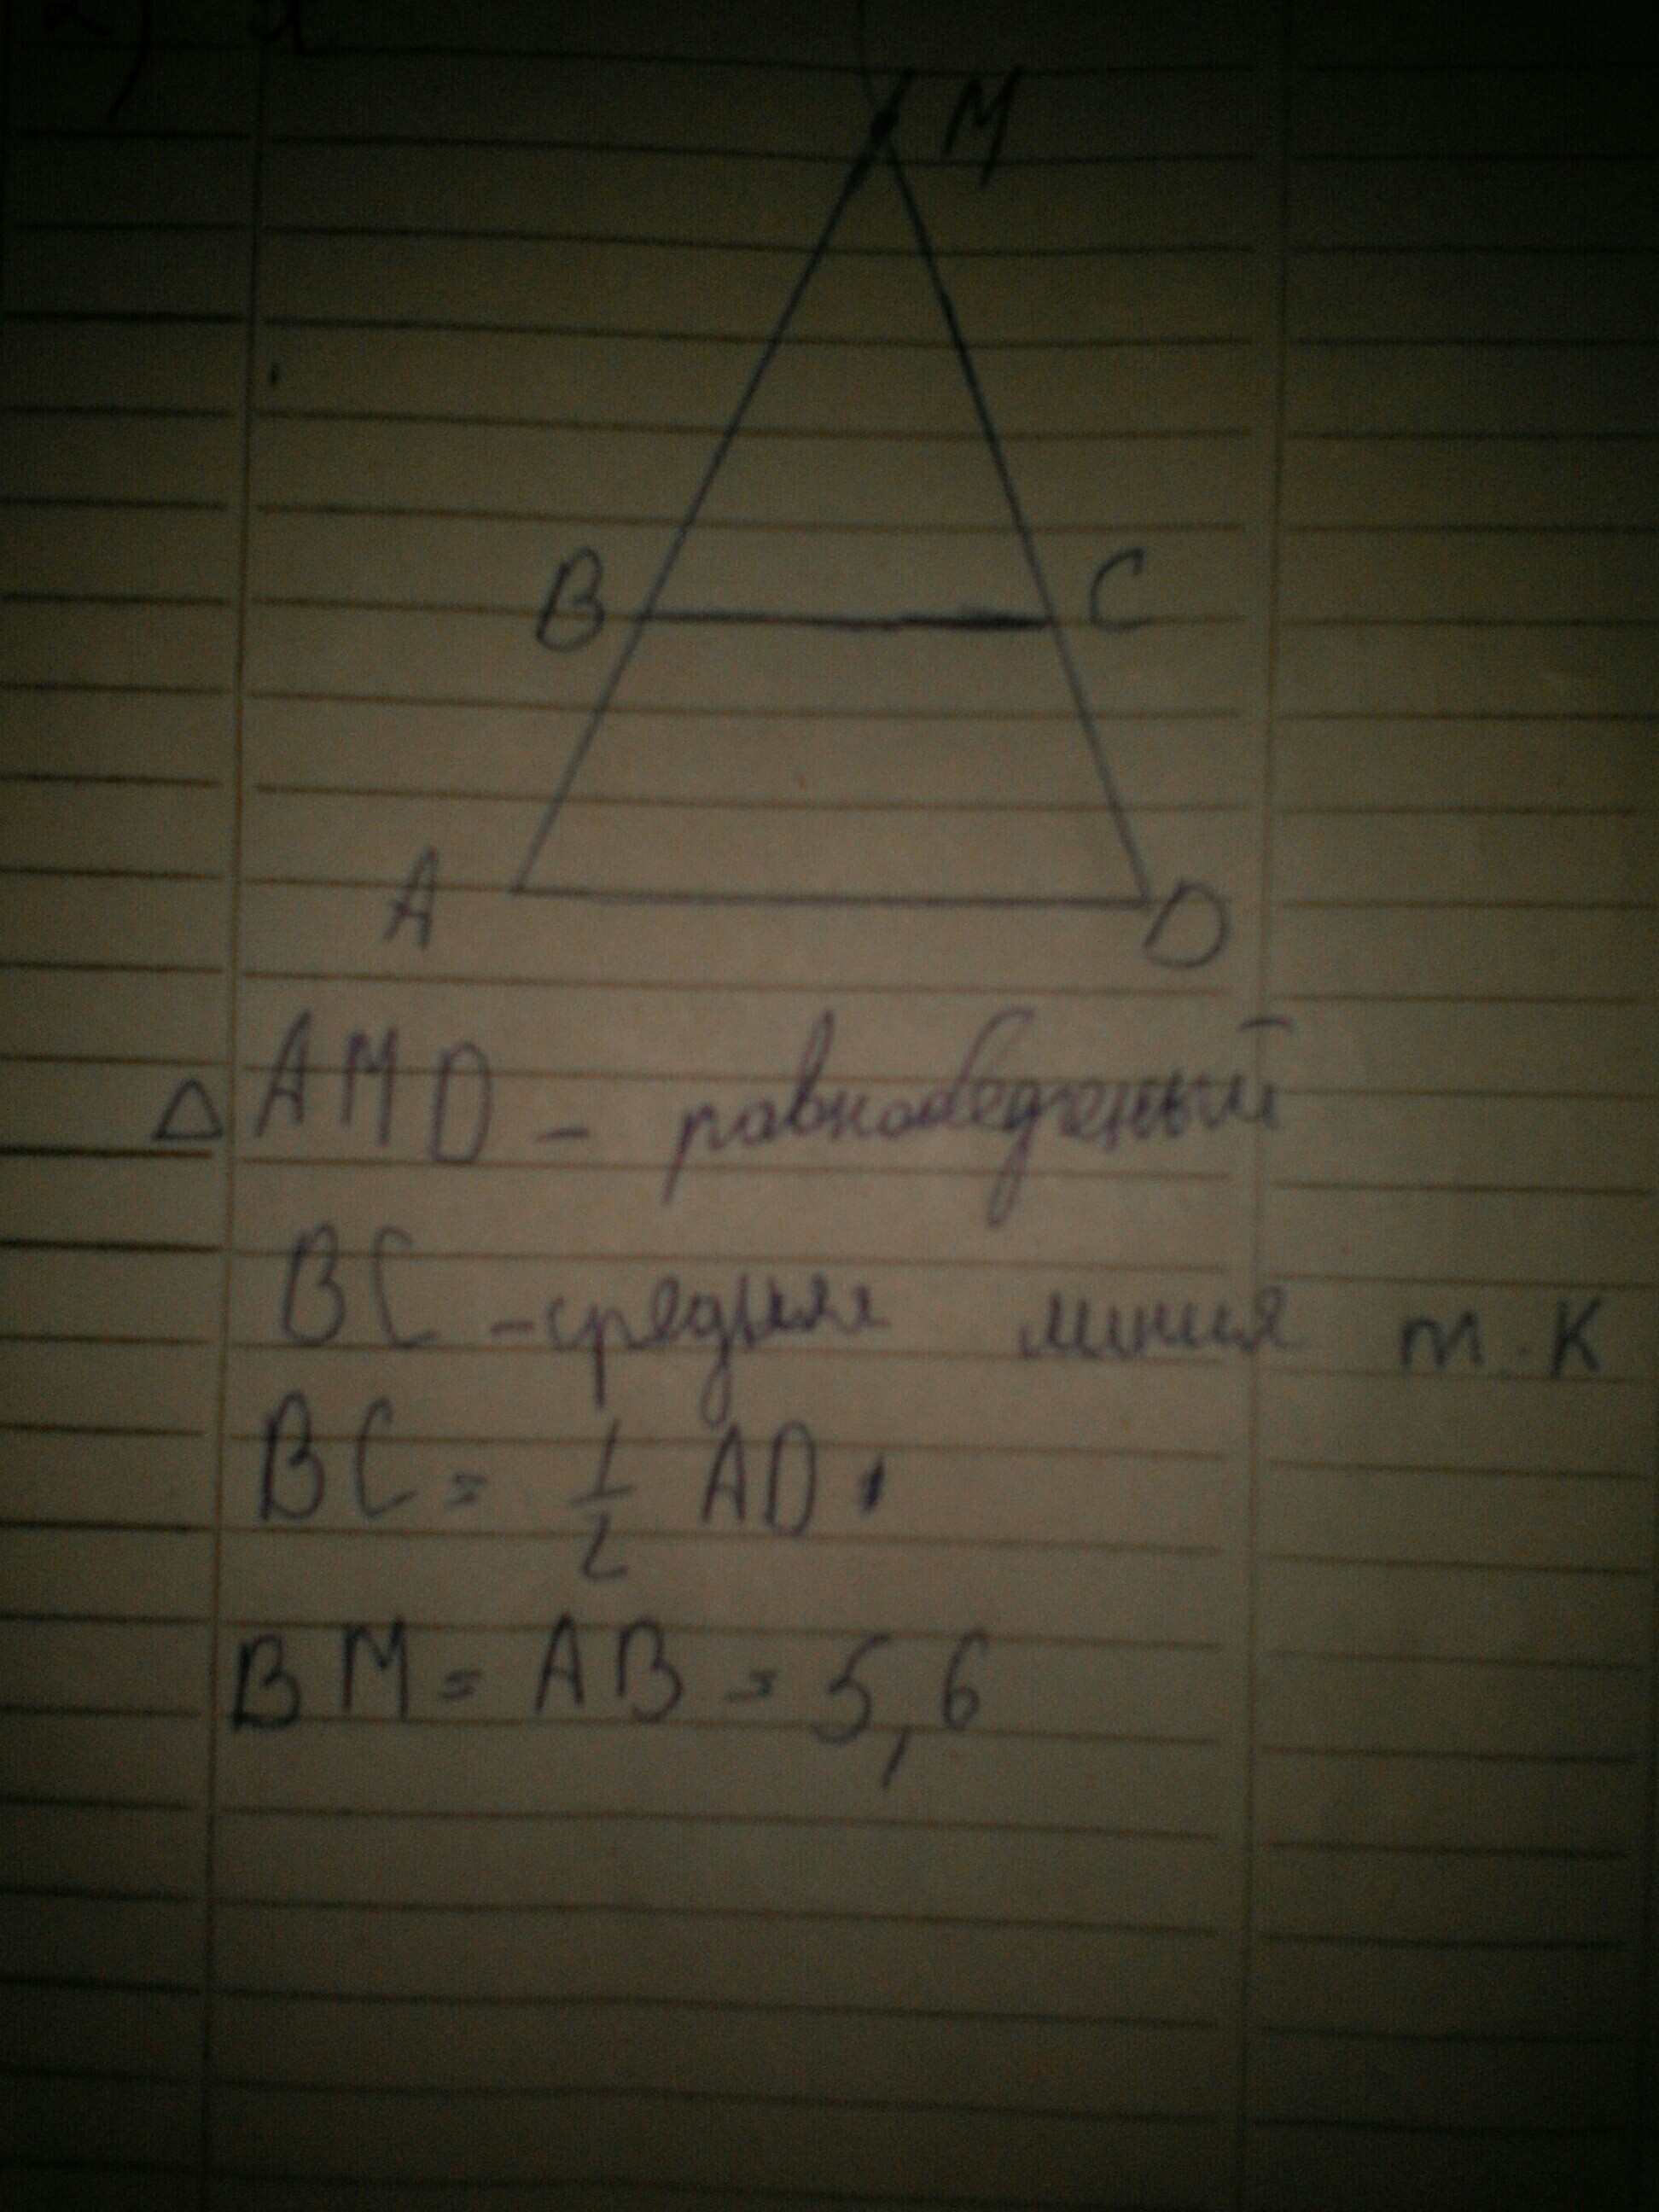 M
B C
A D
△ AMD - равнобедренный
BC - средняя линия т.к
BC = 1/2 AD.
BM = AB = 5,6